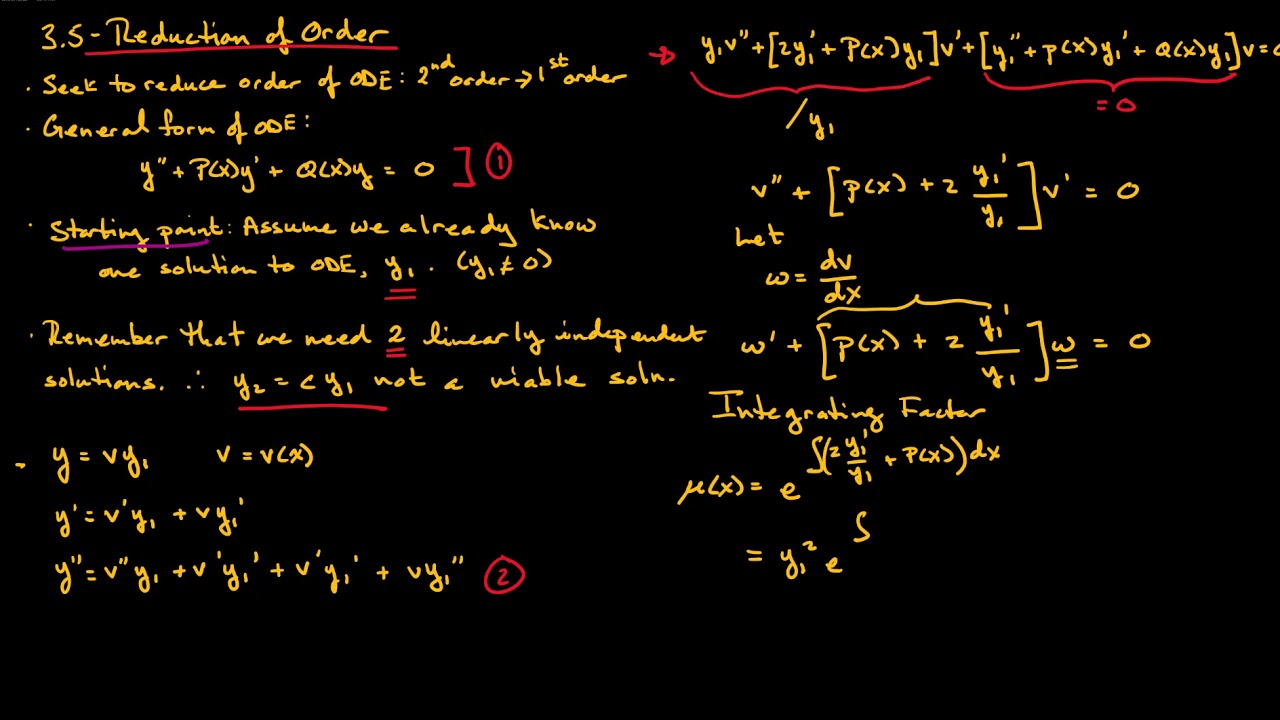 3.5 - Reduction of Order
· Seek to reduce order of ODE: 2nd order → 1st order
· General form of ODE:
y'' + P(x)y' + Q(x)y = 0 ] ①
· Starting point: Assume we already know
one solution to ODE, y₁. (y₁ ≠ 0)
· Remember that we need 2 linearly independent
solutions. ∴ y₂ = c y₁ not a viable soln.
- y = vy₁ v = v(x)
y' = v'y₁ + vy₁'
y'' = v''y₁ + v'y₁' + v'y₁' + vy₁'' ②
→ y₁v'' + [2y₁' + P(x)y₁]v' + [y₁'' + P(x)y₁' + Q(x)y₁]v =
= 0
/y₁
v'' + [P(x) + 2 y₁'/y₁]v' = 0
Let
ω = dv/dx
ω' + [P(x) + 2 y₁'/y₁]ω = 0
Integrating Factor
μ(x) = e^∫(2 y₁'/y₁ + P(x))dx
= y₁² e^∫